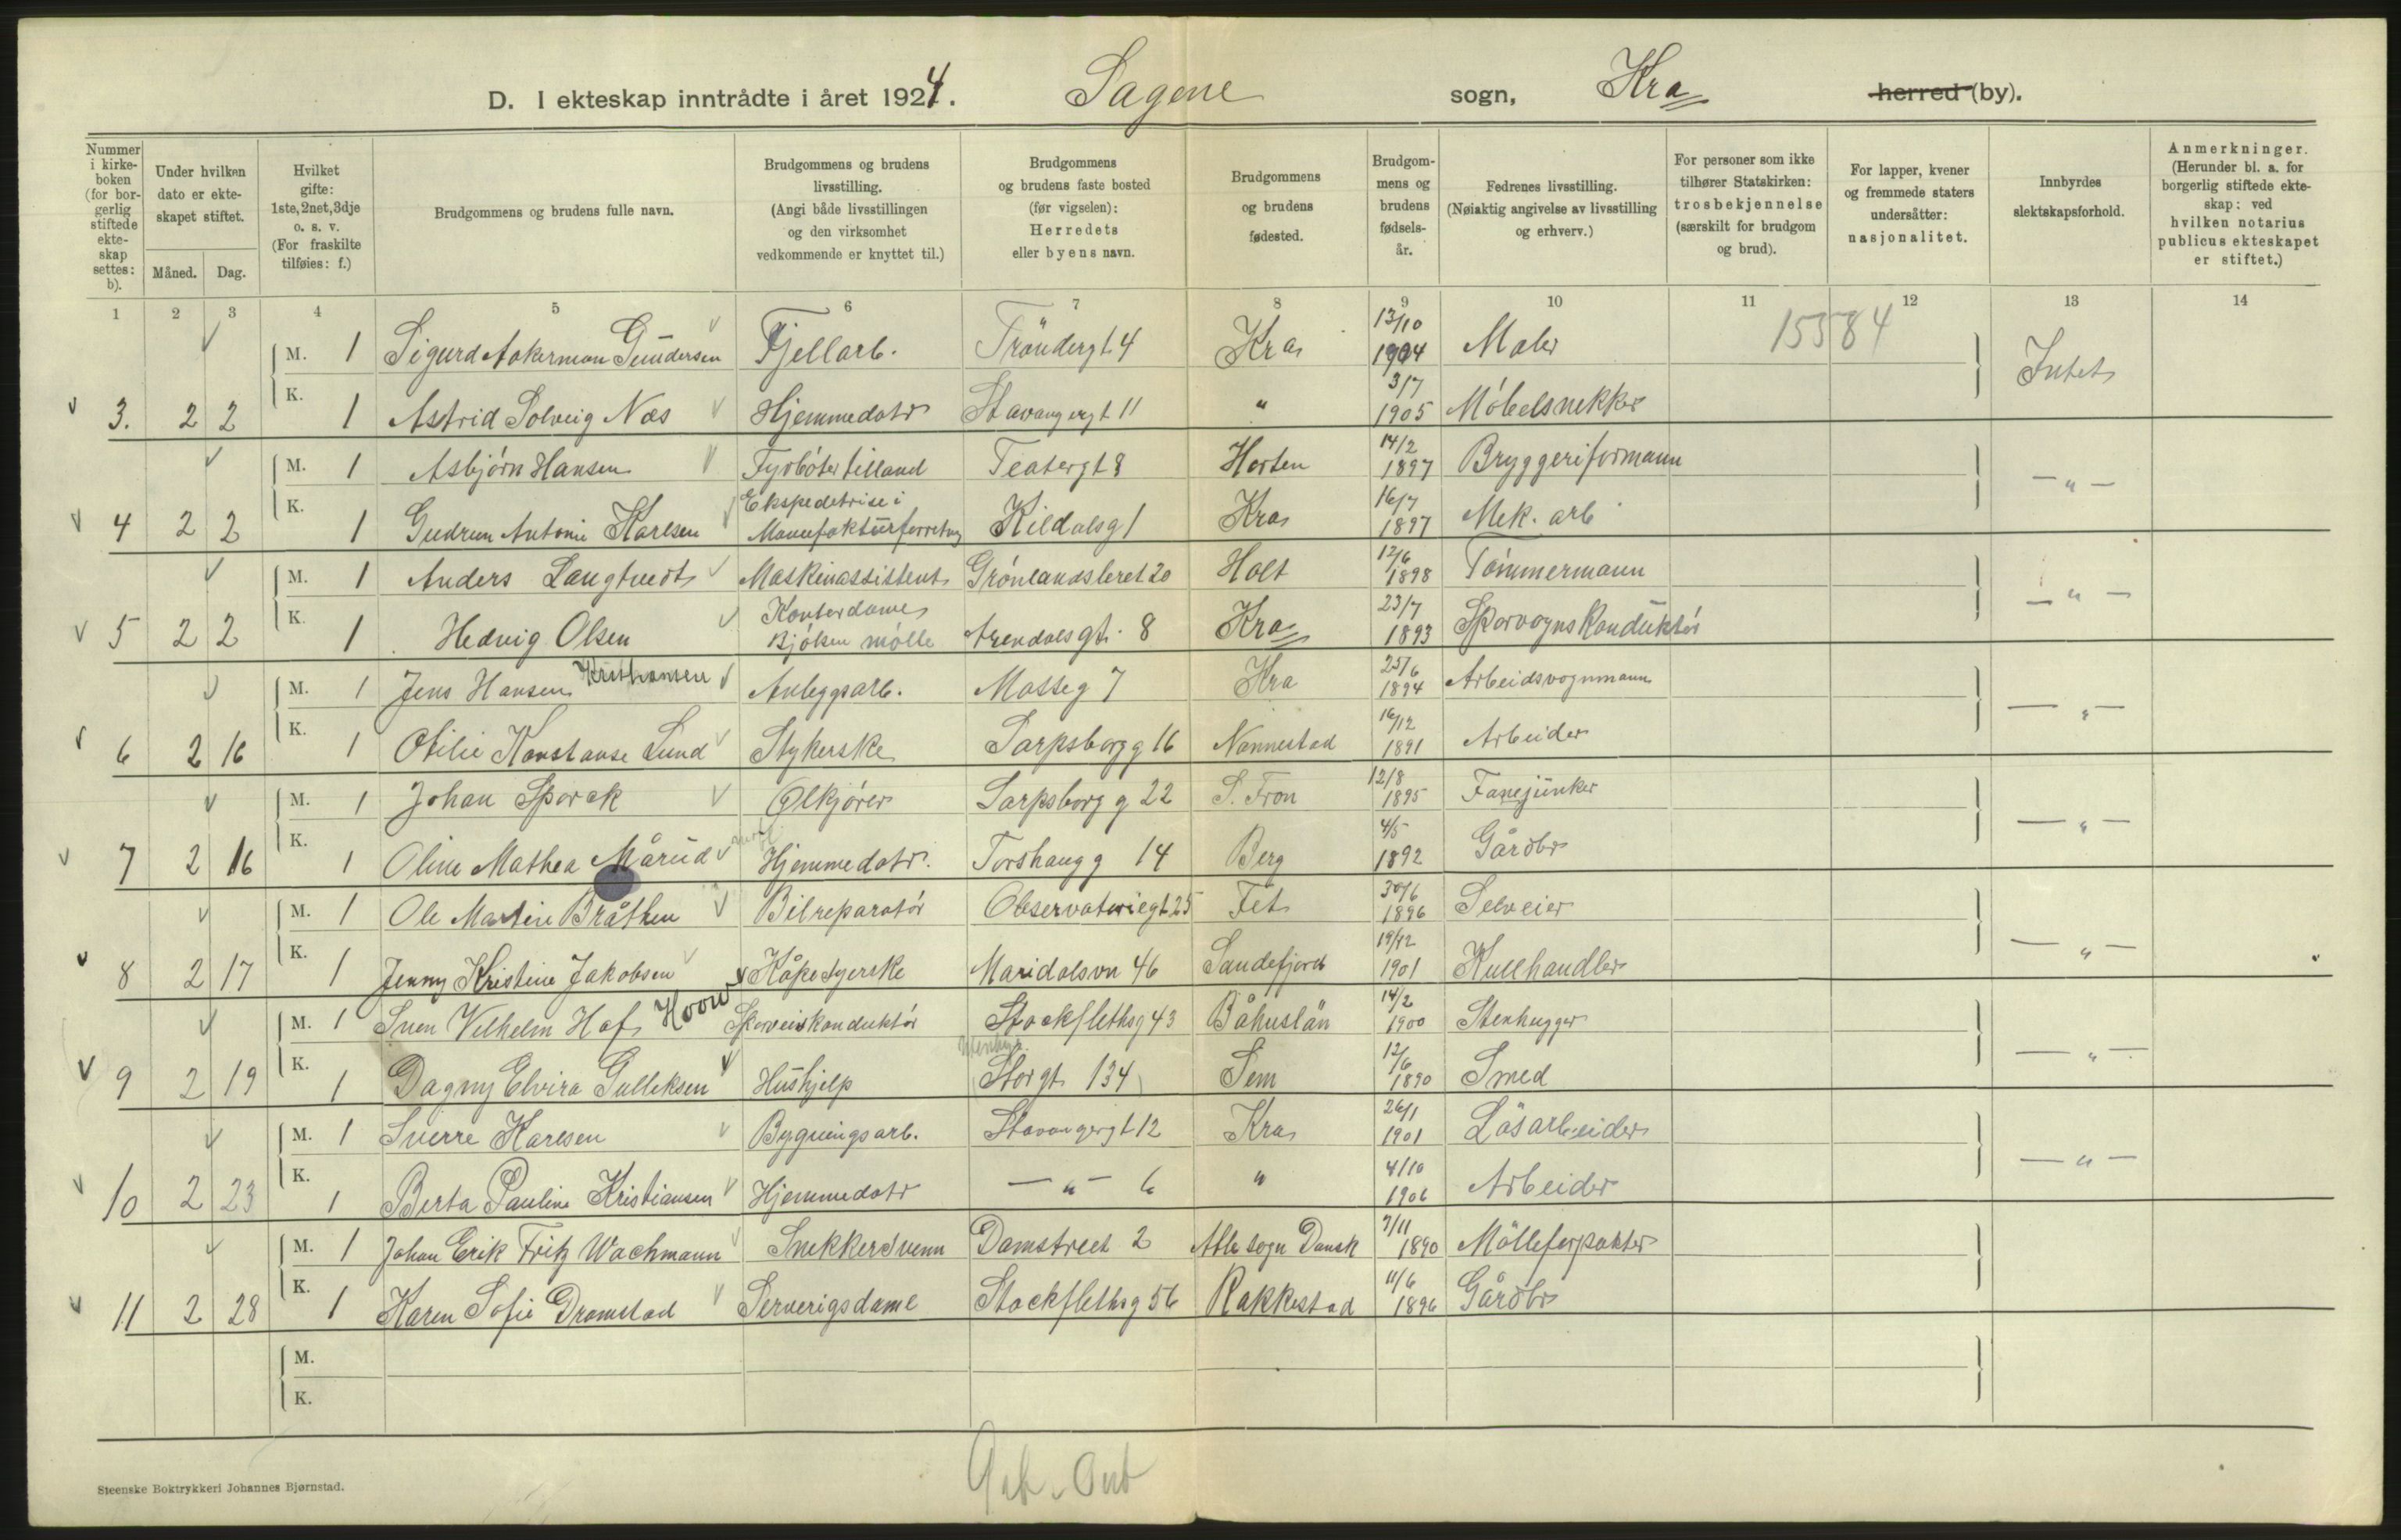 D. I ekteskap inntrådte i året 1924. Sagene sogn, Kra herred (by).
Nummer i kirkeboken (for borgerlig stiftede ekteskap settes: b).
Under hvilken dato er ekteskapet stiftet.
Måned. Dag.
Hvilket gifte: 1ste, 2net, 3dje o. s. v. (For fraskilte tilføies: f.)
Brudgommens og brudens fulle navn.
Brudgommens og brudens livsstilling. (Angi både livsstillingen og den virksomhet vedkommende er knyttet til.)
Brudgommens og brudens faste bosted (før vigselen): Herredets eller byens navn.
Brudgommens og brudens fødested.
Brudgommens og brudens fødselsår.
Fedrenes livsstilling. (Nøiaktig angivelse av livsstilling og erhverv.)
For personer som ikke tilhører Statskirken: trosbekjennelse (særskilt for brudgom og brud).
For lapper, kvener og fremmede staters undersåtter: nasjonalitet.
Innbyrdes slektskapsforhold.
Anmerkninger. (Herunder bl. a. for borgerlig stiftede ekteskap: ved hvilken notarius publicus ekteskapet er stiftet.)
1 2 3 4 5 6 7 8 9 10 11 12 13 14
M. 1 Sigurd Aakerman Gundersen Fjellarb. Tröndergt 4 Kra 13/10 1904 Maler 15584 Intet
3. 2 2 K. 1 Astrid Solveig Næs Hjemmedatr Stavangergt 11 " 3/7 1905 Möbelsnekker
M. 1 Asbjörn Hansen Fyrböter tilland Teatergt 8 Horten 14/2 1897 Bryggeriformann — " —
4 2 2 K. 1 Gudrun Antonie Karlsen Ekspeditrise i Manufakturforretng Kildalsg 1 Kra 16/7 1897 Mek. arb
M. 1 Anders Langtvedt Maskinassistent Grönlandsleret 20 Holt 12/6 1898 Tömmermann — " —
5 2 2 K. 1 Hedvig Olsen Kontordame Bjölsen mölle Arendalsgt. 8 Kra 23/7 1893 Sporvogns Konduktör
M. 1 Jens Hansen Kristiansen Anleggsarb. Mosseg 7 Kra 25/6 1894 Arbeidsvognmann — " —
6 2 16 K. 1 Otilie Konstanse Lund Strykerske Sarpsborgg 16 Nannestad 16/12 1891 Arbeider
M. 1 Johan Sporck Ølkjörer Sarpsborg g 22 S. Fron 12/8 1895 Fanejunker — " —
7 2 16 K. 1 Oline Mathea Mårud Hjemmedatr. Torshaug g 14 Berg 4/5 1892 Gårdbr
M. 1 Ole Martin Bråthen Bilreparatör Observatoriegt 25 Fet 30/6 1896 Selveier — " —
8 2 17 K. 1 Jenny Kristine Jakobsen Kåpesyerske Maridalsvn 46 Sandefjord 19/12 1901 Kullhandler
M. 1 Sven Vilhelm Hof Sporveiskonduktör Stockflethsg 43 Båhuslän 14/2 1900 Stenhugger — " —
9 2 19 K. 1 Dagny Elvira Gulliksen Hushjelp Storgt 134 Sem 12/6 1890 Smed
M. 1 Sverre Karlsen Bygningsarb. Stavangergt 12 Kra 26/1 1901 Lösarbeider — " —
10 2 23 K. 1 Berta Pauline Kristiansen Hjemmedatr — " — 6 " 4/10 1906 Arbeider
M. 1 Johan Erik Fritz Wachmann Snekkersvenn Damstredet 2 sogn Dansk 7/11 1890 Mölleforpakter
11 2 28 K. 1 Karen Sofie Dramstad Serverigsdame Stockflethsg 56 Rakkestad 11/6 1896 Gårdbr
M.
K.
Steenske Boktrykkeri Johannes Bjørnstad.